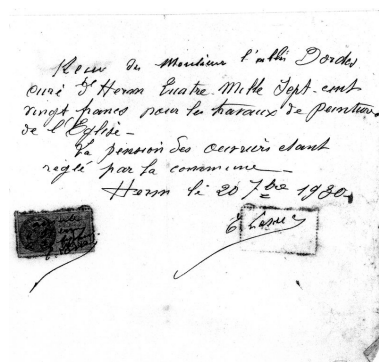 Reçu de Monsieur l'abbé Dordes
curé d'Herm Quatre Mille Sept-cent
vingt francs pour les travaux de peinture
de l'Eglise -
La pension des ouvriers étant
reglé par la commune
Herm le 20 7bre 1930